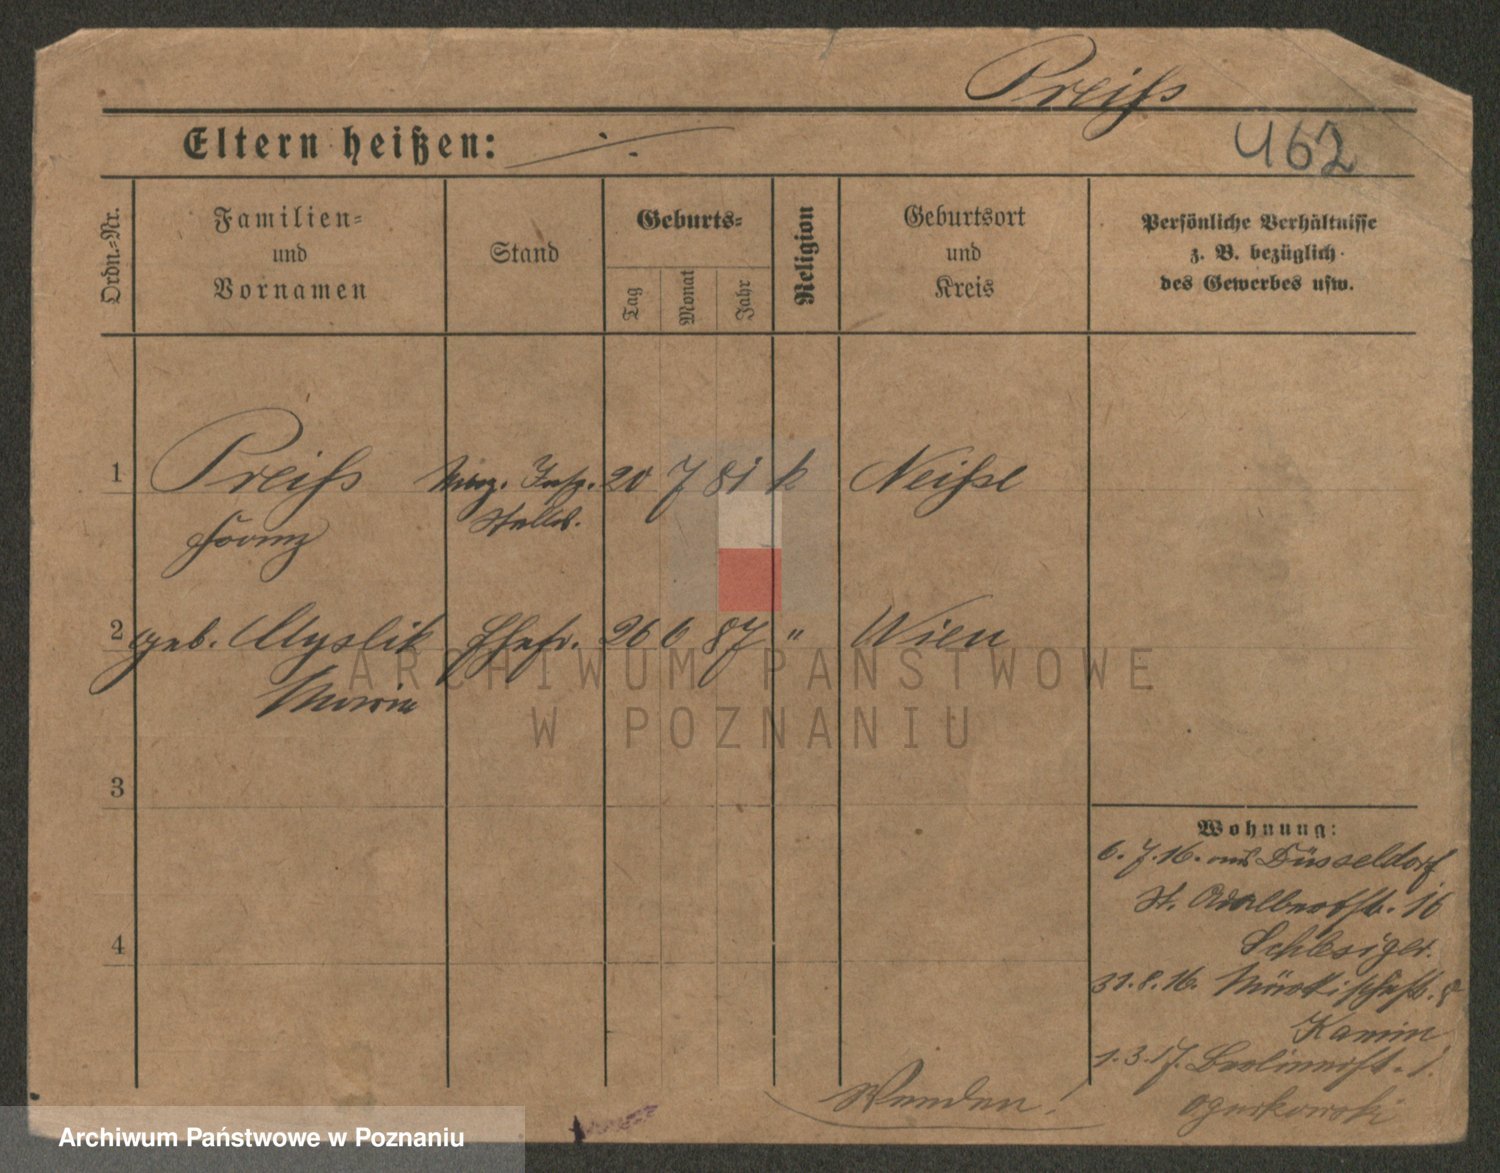 Preiß
Eltern heißen: ·/.
462
Ordn.=Nr.
Familien=
und
Vornamen
Stand
Geburts=
Tag
Monat
Jahr
Religion
Geburtsort
und
Kreis
Persönliche Verhältnisse
z. B. bezüglich
des Gewerbes usw.
1 Preiß Insp. 20 7 81 k Neiße
Franz Stellv.
2 geb. Myslik Ehefr. 26 6 87 " Wien
Maria
3
4
Wohnung:
6.7.16. aus Düsseldorf
St. Adalbertstr. 16
Schlesiger.
31.8.16. Märkischestr. 8
Kamin
1.3.17. Berlinerstr. 1.
Ogurkowski
Wenden!
ARCHIWUM PAŃSTWOWE
W POZNANIU
Archiwum Państwowe w Poznaniu